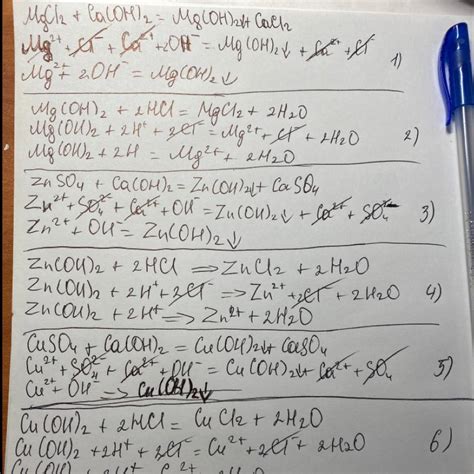 MgCl₂ + Ca(OH)₂ = Mg(OH)₂↓ + CaCl₂
Mg²⁺ + Cl⁻ + Ca²⁺ + 2OH⁻ = Mg(OH)₂↓ + Ca²⁺ + Cl⁻ 1)
Mg²⁺ + 2OH⁻ = Mg(OH)₂↓
Mg(OH)₂ + 2HCl = MgCl₂ + 2H₂O
Mg(OH)₂ + 2H⁺ + 2Cl⁻ = Mg²⁺ + Cl⁻ + 2H₂O 2)
Mg(OH)₂ + 2H = Mg²⁺ + 2H₂O
ZnSO₄ + Ca(OH)₂ = Zn(OH)₂↓ + CaSO₄
Zn²⁺ + SO₄²⁻ + Ca²⁺ + OH⁻ = Zn(OH)₂↓ + Ca²⁺ + SO₄²⁻ 3)
Zn²⁺ + OH⁻ = Zn(OH)₂↓
Zn(OH)₂ + 2HCl ⇒ ZnCl₂ + 2H₂O
Zn(OH)₂ + 2H⁺ + 2Cl⁻ ⇒ Zn²⁺ + 2Cl⁻ + 2H₂O 4)
Zn(OH)₂ + 2H⁺ ⇒ Zn²⁺ + 2H₂O
CuSO₄ + Ca(OH)₂ = Cu(OH)₂↓ + CaSO₄
Cu²⁺ + SO₄²⁻ + Ca²⁺ + OH⁻ = Cu(OH)₂↓ + Ca²⁺ + SO₄ 5)
Cu²⁺ + OH⁻ ⇒ Cu(OH)₂↓
Cu(OH)₂ + 2HCl = CuCl₂ + 2H₂O
Cu(OH)₂ + 2H⁺ + 2Cl⁻ = Cu²⁺ + 2Cl⁻ + 2H₂O 6)